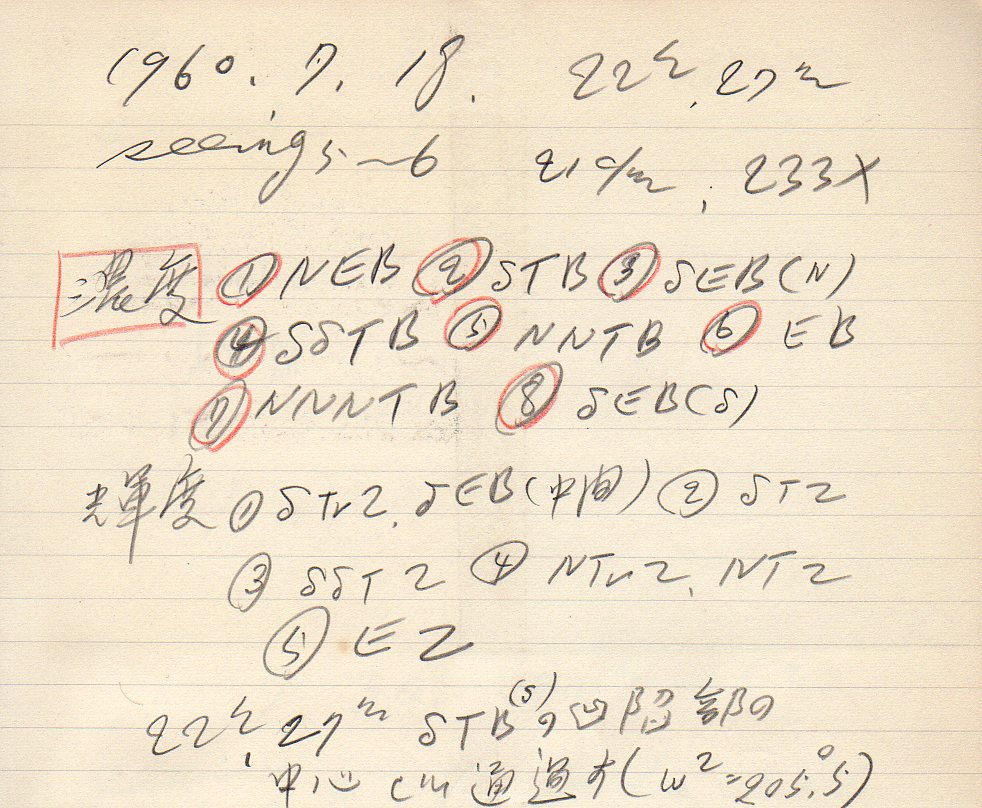 1960. 7. 18. 22h, 27m
seeing 5~6 21cm, 233X
濃度 ①NEB ②STB ③SEB(N)
④SSTB ⑤NNTB ⑥EB
⑦NNNTB ⑧SEB(S)
輝度 ①STrZ, SEB(中間) ②STZ
③SSTZ ④NTrZ, NTZ
⑤EZ
22h, 27m STB(S)の凹陥部の
中心 CM通過す(ω2=205.°5)